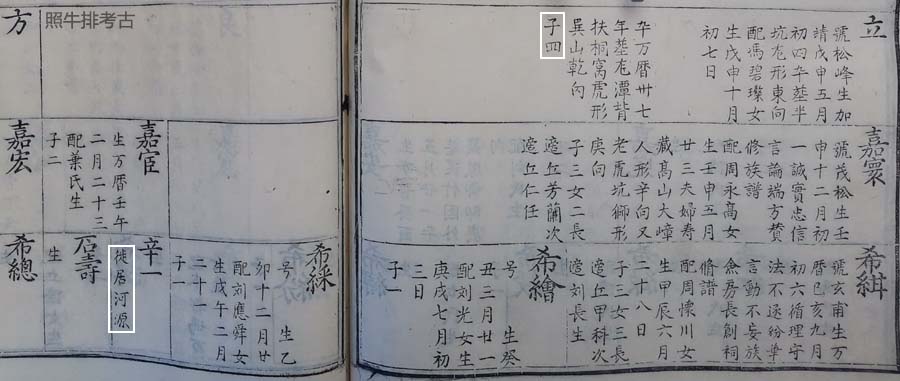 照牛排考古
立
號松峰生加
靖戊申五月
初四卒塟半
坑尨形東向
配馮碧璨女
生戊申十月
初七日
卒万曆卅七
年塟尨潭背
扶桐窩虎形
巽山乾向
子四
嘉寰
號茂松生壬
申十二月初
一誠實忠信
言論端方賛
修族譜
配周永高女
生壬申五月
廿三夫婦寿
藏髙山大嶂
人形辛向又
老虎坑獅形
庚向
子三女二長
適丘芳蘭次
適丘仁任
希緝
號玄甫生万
曆己亥九月
初六循理守
法不逐紛華
言動不妄族
僉房長創祠
脩譜
配周懐川女
生甲辰六月
二十八日
子三女三長
適丘甲科次
適刘長生
希繪
号 生癸
丑三月廿一
配刘光女生
庚戌七月初
三日
子一
希綵
号 生乙
卯十二月廿
配刘應舜女
生戊午二月
二十一
子一
嘉宦
生万曆壬午
二月二十三
配葉氏生
子二
辛一
徙居河源
石壽
生
方
嘉宏
希總